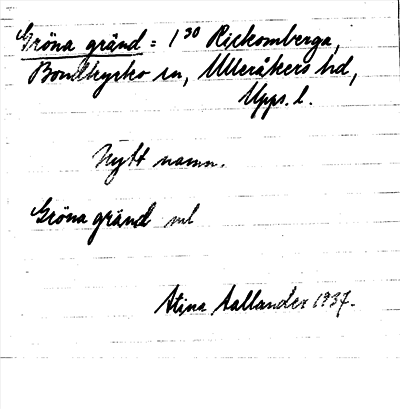 Gröna gränd = 1³⁰ Rickomberga,
Bondkyrko sn, Ulleråkers hd,
Upps. l.
Nytt namn.
Gröna gränd ml
Stina Aallander 1937.